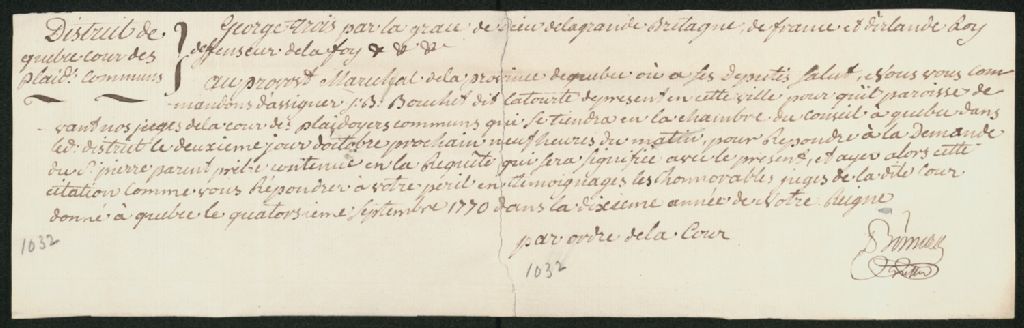 District de
quebec cour des
plaid.s communs
George trois par la grace de Dieu delagrande Bretagne, de france et d'irlande Roy
deffenseur dela foy & & &c
au provost Marechal dela province dequebec où a ses deputés Salut, Nous vous com
mandons dassigner J. B. Bouchet dit latourte depresent en cette ville pour quil paroisse de
vant nos juges dela cour des plaidoyers communs qui se tiendra en la chambre du conseil à quebec dans
led. district le deuxieme jour doctobre prochain neuf heures du matin, pour Repondre à la Demande
du S.r pierre parent pretre contenue en la Requette qui sera signifiée avec le present, et ayez alors cette
citation comme vous Repondrez à votre péril en témoignages les honnorables juges de la dite Cour
donné à quebec le quatorsieme Septembre 1770 dans la dixieme année de Notre Reigne
par ordre dela Cour
1032
1032